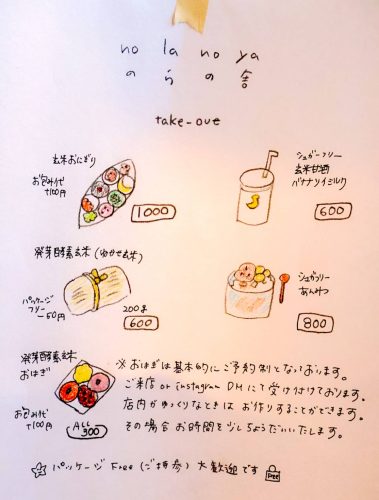 no la no ya
のらの舎
take-out
玄米おにぎり
お包み代
+100円
1000
シュガーフリー
玄米甘酒
バナナソイミルク
600
発芽酵素玄米(ゆかせ玄米)
パッケージ
フリー
-50円
200g
600
シュガーフリー
あんみつ
800
発芽酵素玄米
おはぎ
お包み代
+100円
ALL
300
※おはぎは基本的にご予約制となっております。
ご来店 or instagram DMにて受け付けております。
店内がゆっくりなときはお作りすることができます。
その場合お時間を少しちょうだいいたします。
☆パッケージFree(ご持参)大歓迎です
Free